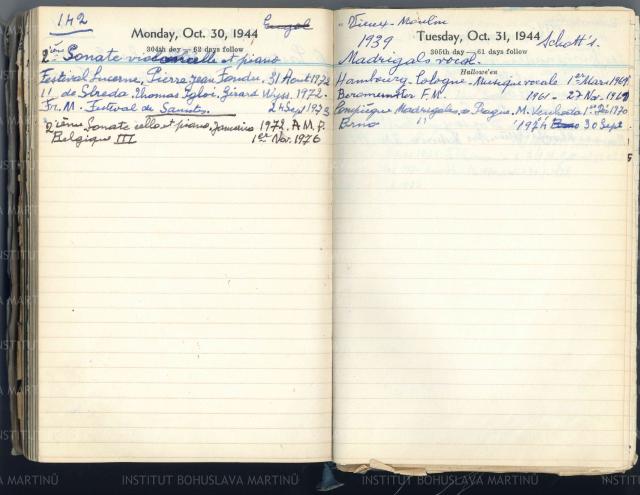 142
Monday, Oct. 30, 1944
304th day — 62 days follow
2ième Sonate violoncelle et piano
Festival Lucerne, Pierre Jean Fonda, 31 Aout 1972
11. de Streda Thomas Igloi, Girard Wyss. 1972.
Fr. M. Festival de Saintes. 24 Sept 1973
2ième Sonate cello et piano, Janvier 1972. A.M.F.
Belgique III 1er Nov. 1976
"Vieux-Moulin
Tuesday, Oct. 31, 1944
305th day — 61 days follow
Hallowe'en
1939 Schott's
Madrigals vocal.
Hambourg - Cologne - Musique vocale 1er Mars 1969
Beromunster F.M. 1961 - 27 Nov. 1969
Compiègne Madrigales, Pragis. M. Venhoda 1970
Brno 11 1974 30 Sept.
INSTITUT BOHUSLAVA MARTINŮ
INSTITUT BOHUSLAVA MARTINŮ